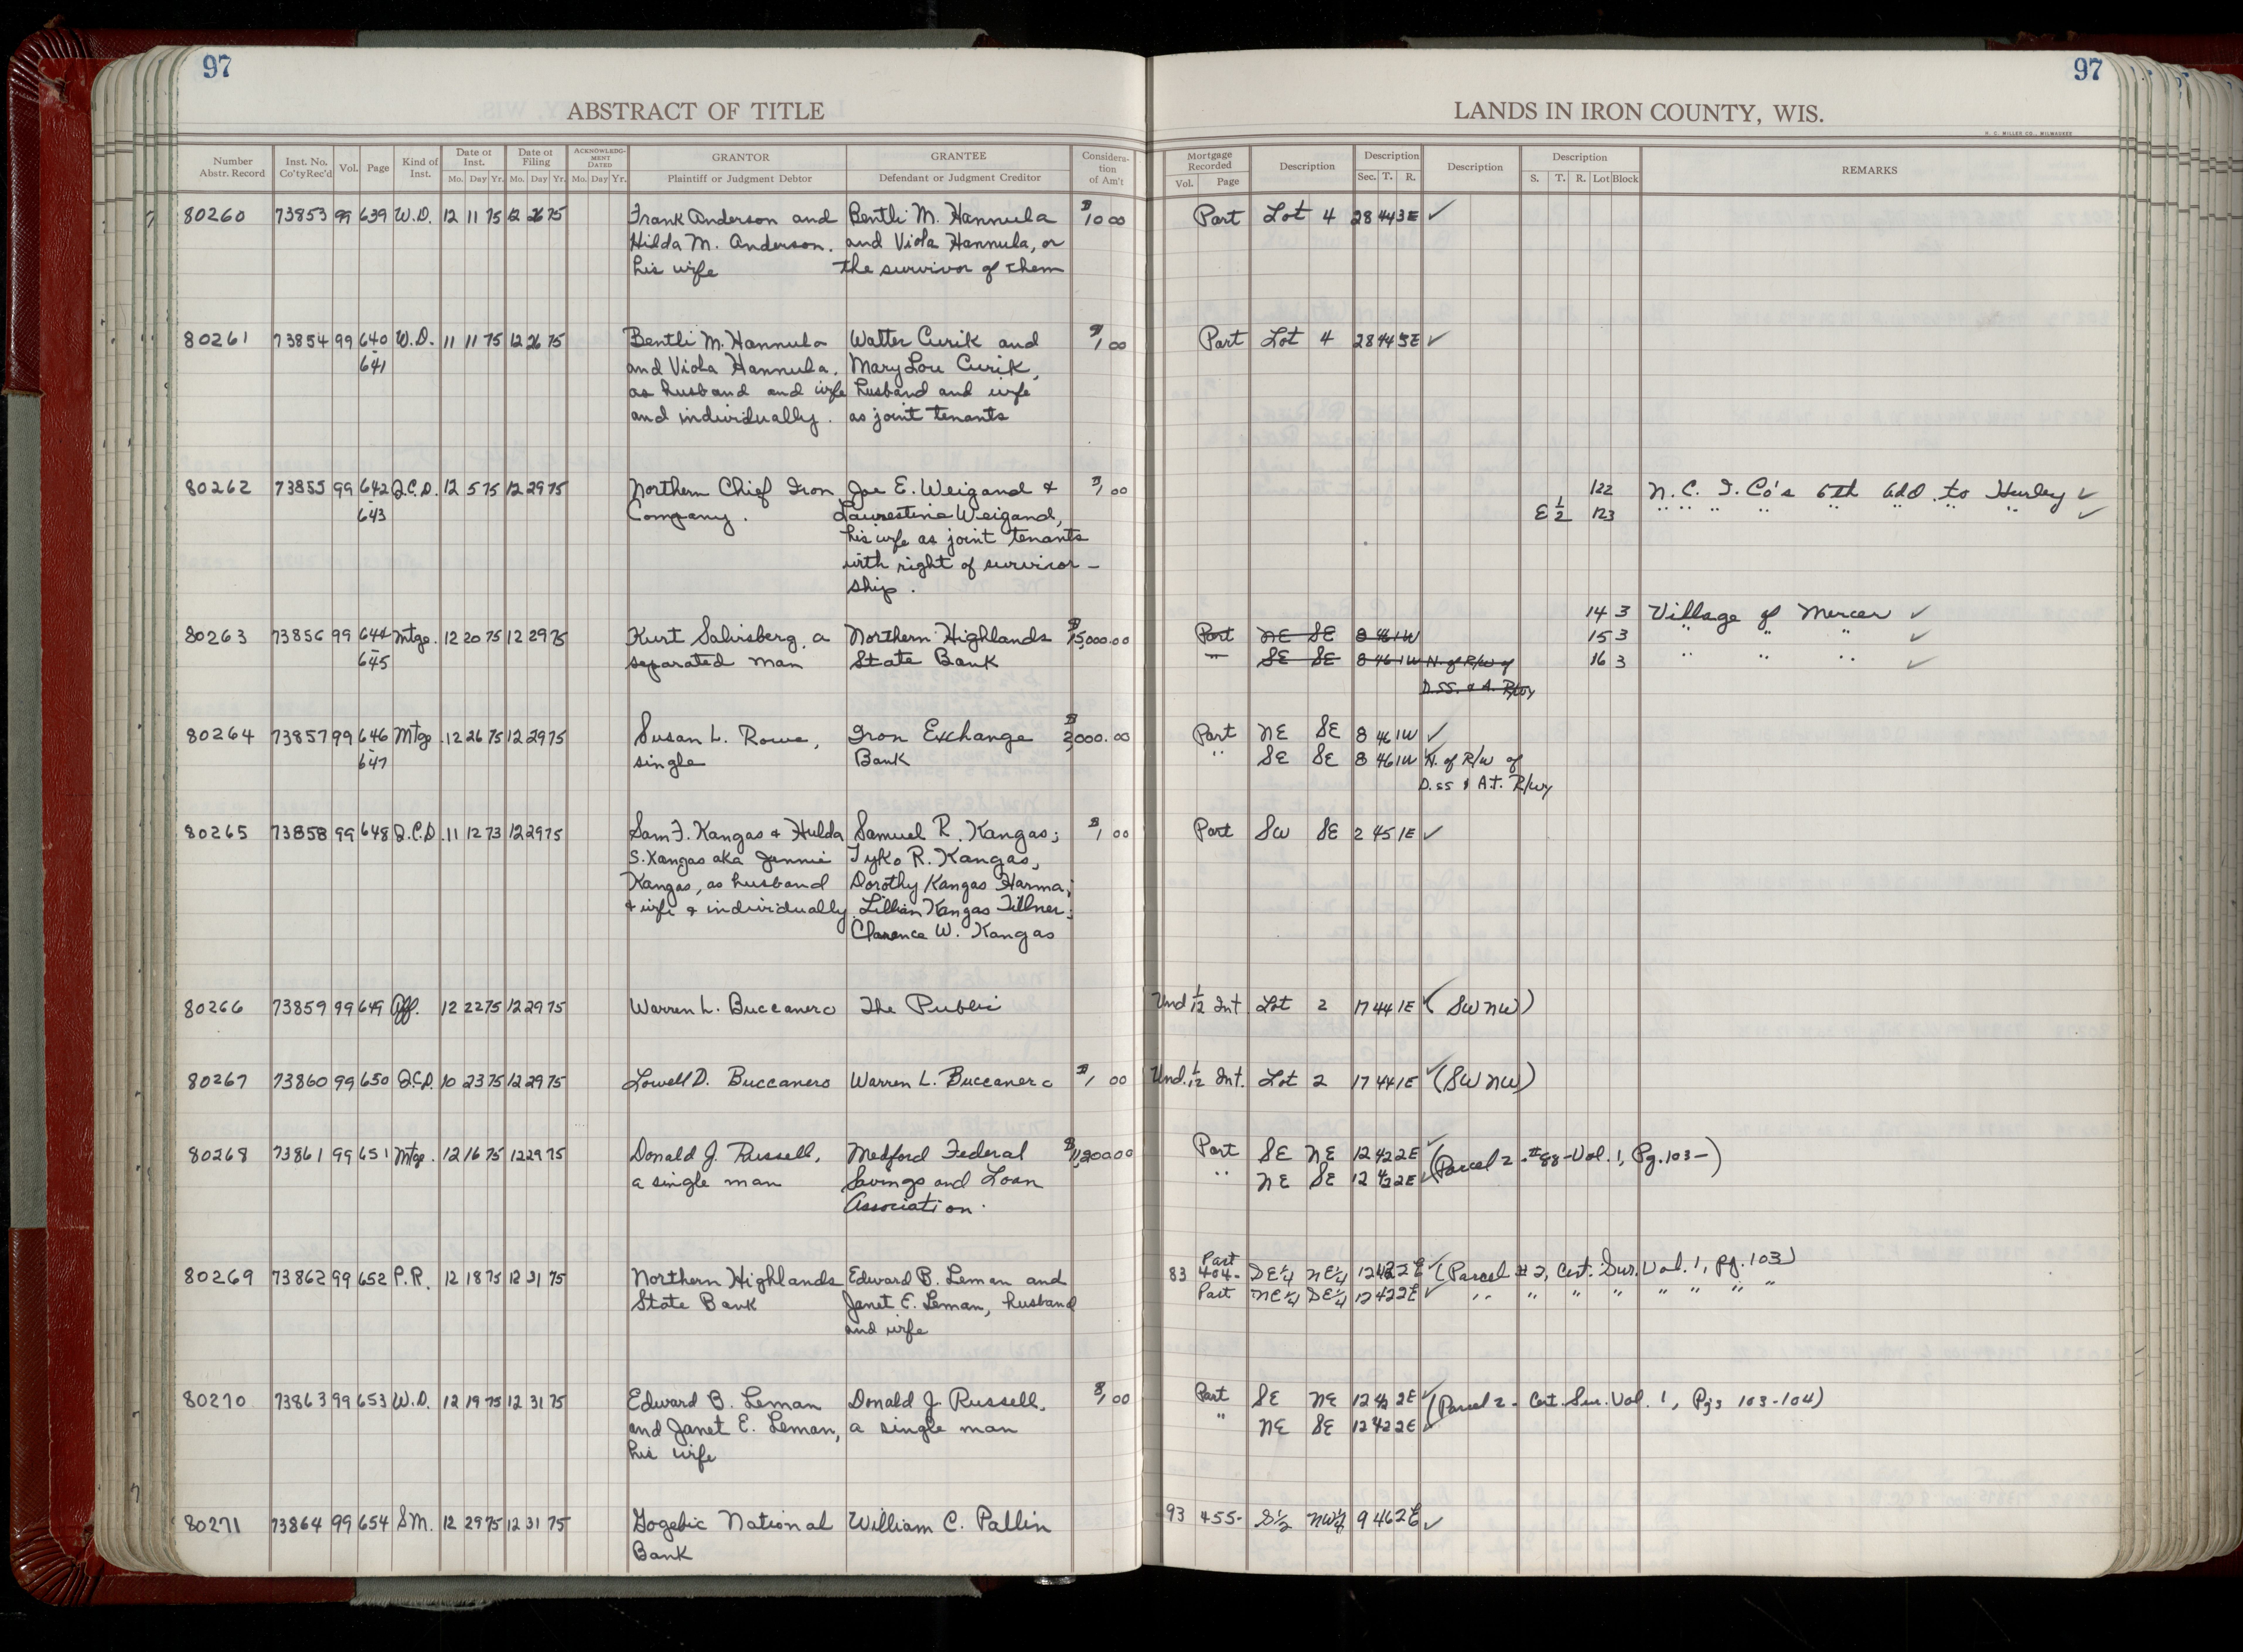 97
97
ABSTRACT OF TITLE
LANDS IN IRON COUNTY, WIS.
H. C. MILLER CO., MILWAUKEE
Number Abstr. Record Inst. No. Co'tyRec'd Vol. Page Kind of Inst. Date of Inst. Mo. Day Yr. Date of Filing Mo. Day Yr. ACKNOWLEDGMENT DATED Mo. Day Yr. GRANTOR Plaintiff or Judgment Debtor GRANTEE Defendant or Judgment Creditor Consideration of Am't
Mortgage Recorded Vol. Page Description Description Sec. T. R. Description Description S. T. R. Lot Block REMARKS
80260 73853 99 639 W.D. 12 11 75 12 26 75 Frank Anderson and Bentli M. Hannula $10 00 Part Lot 4 28 44 3E ✓
Hilda M. Anderson, and Viola Hannula, or
his wife the survivor of them
80261 73854 99 640 W.D. 11 11 75 12 26 75 Bentli M. Hannula Walter Curik and $1 00 Part Lot 4 28 44 3E ✓
641 and Viola Hannula, Mary Lou Curik,
as husband and wife husband and wife
and individually. as joint tenants
80262 73855 99 642 Q.C.D. 12 5 75 12 29 75 Northern Chief Iron Joe E. Weigand & $1 00 122 N. C. I. Co's 6th Add. to Hurley ✓
643 Company. Laurestine Weigand, E 1/2 123 " " " " " " " " ✓
his wife as joint tenants
with right of survivor-
ship.
14 3 Village of Mercer ✓
80263 73856 99 644 Mtge. 12 20 75 12 29 75 Kurt Salvisberg, a Northern Highlands $15,000.00 Part NE SE 8 46 1W 15 3 " " " ✓
645 separated man State Bank " SE SE 8 46 1W N. of R/W of 16 3 " " " ✓
D.SS. & A. R/wy
80264 73857 99 646 Mtge. 12 26 75 12 29 75 Susan L. Rowe, Iron Exchange $2,000.00 Part NE SE 8 46 1W ✓
647 single Bank " SE SE 8 46 1W N. of R/W of
D.SS & A.T. R/wy
80265 73858 99 648 Q.C.D. 11 12 73 12 29 75 Sam F. Kangas & Hulda Samuel R. Kangas; $1 00 Part SW SE 2 45 1E ✓
S. Kangas aka Jennie Tyko R. Kangas,
Kangas, as husband Dorothy Kangas Harma;
& wife & individually. Lillian Kangas Tillner;
Clarence W. Kangas
80266 73859 99 649 Aff. 12 22 75 12 29 75 Warren L. Buccanero The Public Und 1/12 Int Lot 2 17 44 1E ✓ (SW NW)
80267 73860 99 650 Q.C.D. 10 23 75 12 29 75 Lowell D. Buccanero Warren L. Buccanero $1 00 Und. 1/12 Int. Lot 2 17 44 1E ✓ (SW NW)
80268 73861 99 651 Mtge. 12 16 75 12 29 75 Donald J. Russell, Medford Federal $11,200.00 Part SE NE 12 42 2E ✓ (Parcel 2 - #88 - Vol. 1, Pg. 103-)
a single man Savings and Loan " NE SE 12 42 2E ✓
Association.
80269 73862 99 652 P.R. 12 18 75 12 31 75 Northern Highlands Edward B. Leman and 83 Part 404- SE¼ NE¼ 12 42 2E ✓ (Parcel #2, Cert. Sur. Vol. 1, Pg. 103)
State Bank Janet E. Leman, husband Part NE¼ SE¼ 12 42 2E ✓ " " " " " " "
and wife
80270 73863 99 653 W.D. 12 19 75 12 31 75 Edward B. Leman Donald J. Russell, $1,00 Part SE NE 12 42 2E ✓ (Parcel 2 - Cert. Sur. Vol. 1, Pgs 103-104)
and Janet E. Leman, a single man " NE SE 12 42 2E ✓
his wife
80271 73864 99 654 SM. 12 29 75 12 31 75 Gogebic National William C. Pallin 93 455- S½ NW¼ 9 46 2E ✓
Bank